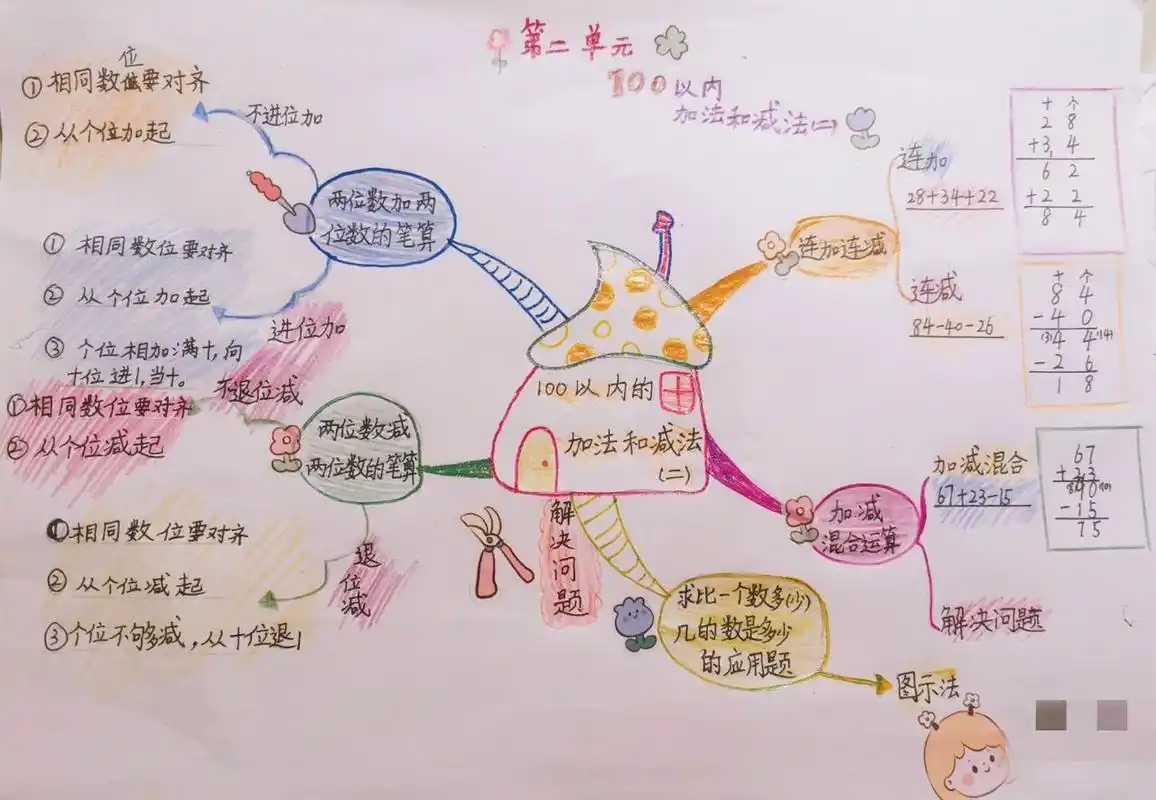 第二单元
100以内
加法和减法(二)
位
①相同数位要对齐
②从个位加起
不进位加
两位数加两
位数的笔算
①相同数位要对齐
②从个位加起
③个位相加满十,向
十位进1,当十。
进位加
不退位减
①相同数位要对齐
②从个位减起
两位数减
两位数的笔算
①相同数位要对齐
②从个位减起
③个位不够减,从十位退1
退位减
100以内的
加法和减法
(二)
连加连减
连加
28+34+22
十 个
2 8
+3, 4
6 2
+2 2
8 4
连减
84-40-26
十 个
8 4
-4 0
(3)4 4(14)
-2 6
1 8
加减
混合运算
加减混合
67+23-15
67
+23
(8)90(10)
-15
75
解决问题
解决问题
求比一个数多(少)
几的数是多少
的应用题
图示法